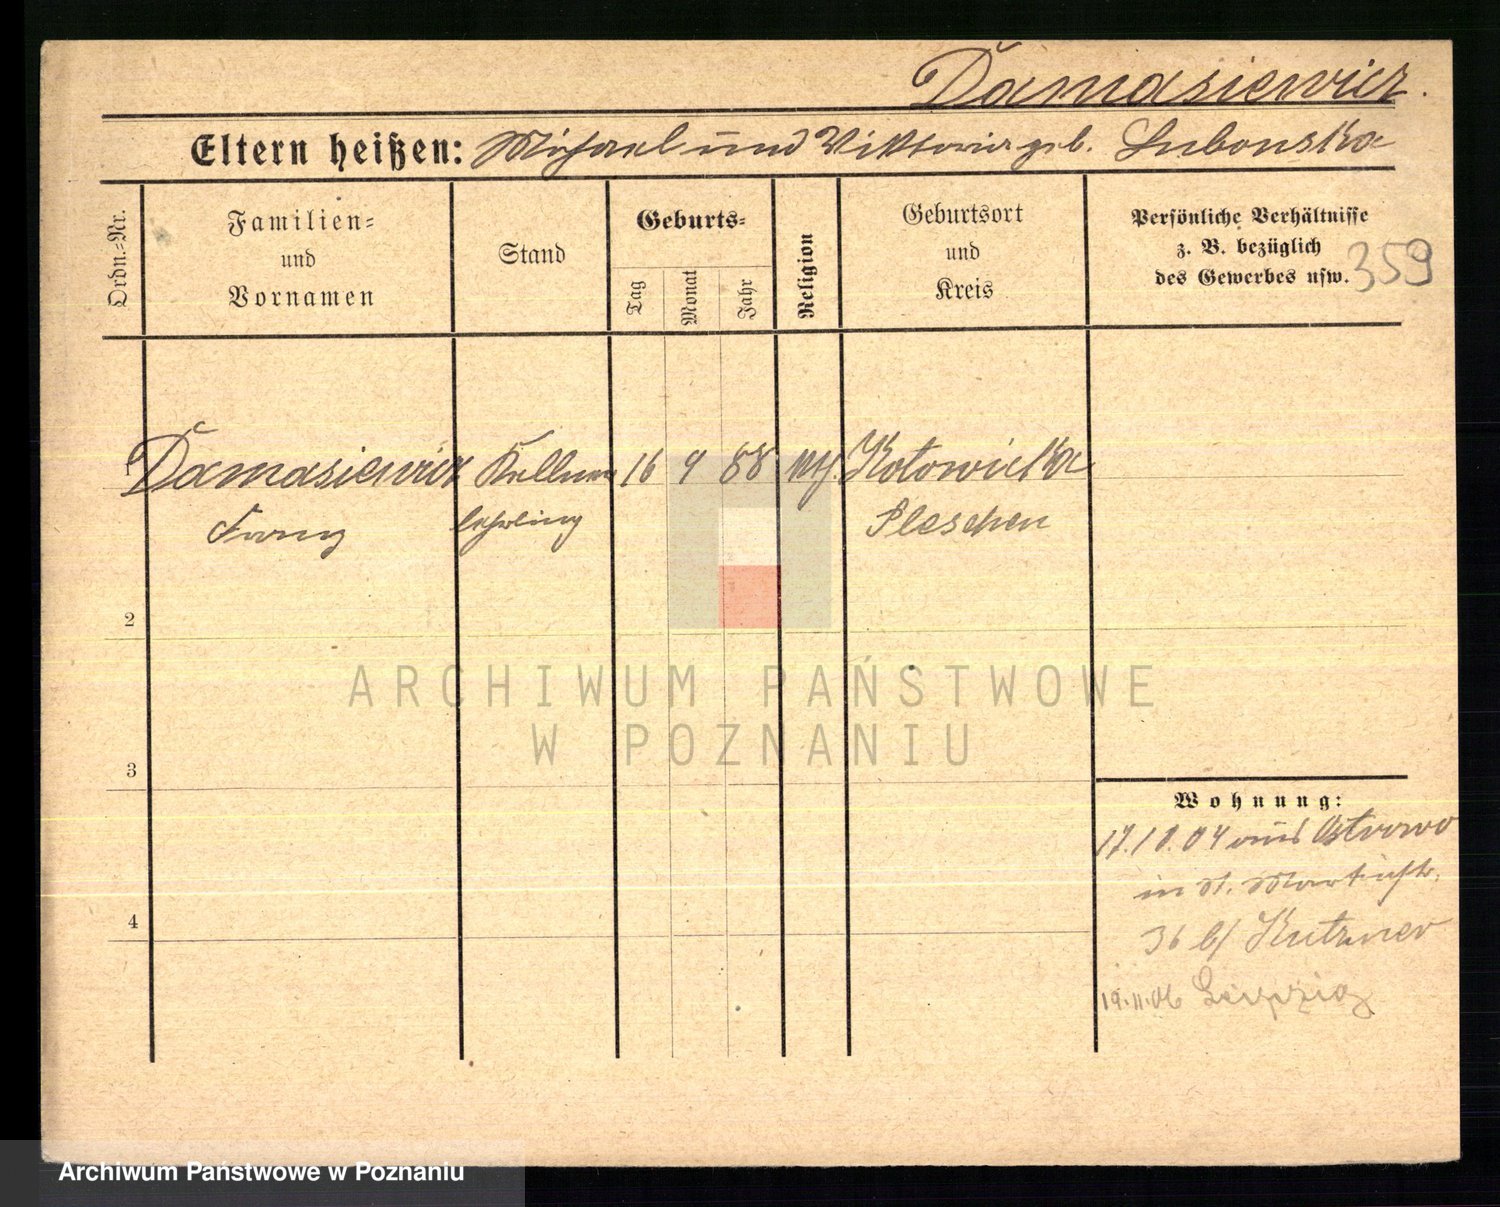 Damasiewicz.
Eltern heißen: Michael und Viktoria geb. Lubonska
Ordn.=Nr.
Familien=
und
Vornamen
Stand
Geburts=
Tag
Monat
Jahr
Religion
Geburtsort
und
Kreis
Persönliche Verhältnisse
z. B. bezüglich
des Gewerbes usw.
359
1 Damasiewicz Kellner 16 9 88 Kotowiecka
Franz lehrling Pleschen
2
3
4
Wohnung:
17.10.04 aus Ostrowo
in St. Martinstr.
36 b/ Kutzner
19.11.06 Leipzig
ARCHIWUM PAŃSTWOWE
W POZNANIU
Archiwum Państwowe w Poznaniu